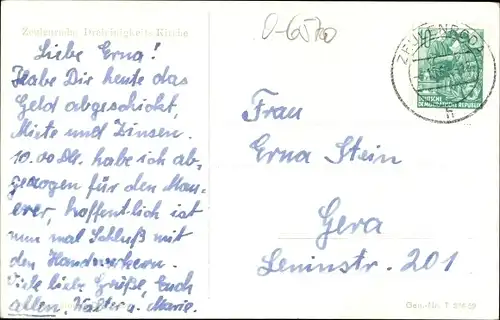 Zeulenroda Dreieinigkeits-Kirche
O-6570
Liebe Erna!
Habe Dir heute das
Geld abgeschickt,
Miete und Zinsen.
10.00 DM. habe ich ab-
gezogen für den Mau-
erer, hoffentlich ist
nun mal Schluß mit
den Handwerkern.
Viele liebe Grüße, Euch
allen, Walter u. Marie.
ZEULENRODA
10
DEUTSCHE
DEMOKRATISCHE REPUBLIK
h
Frau
Erna Stein
Gera
Leninstr. 201
Gen.-Nr. T